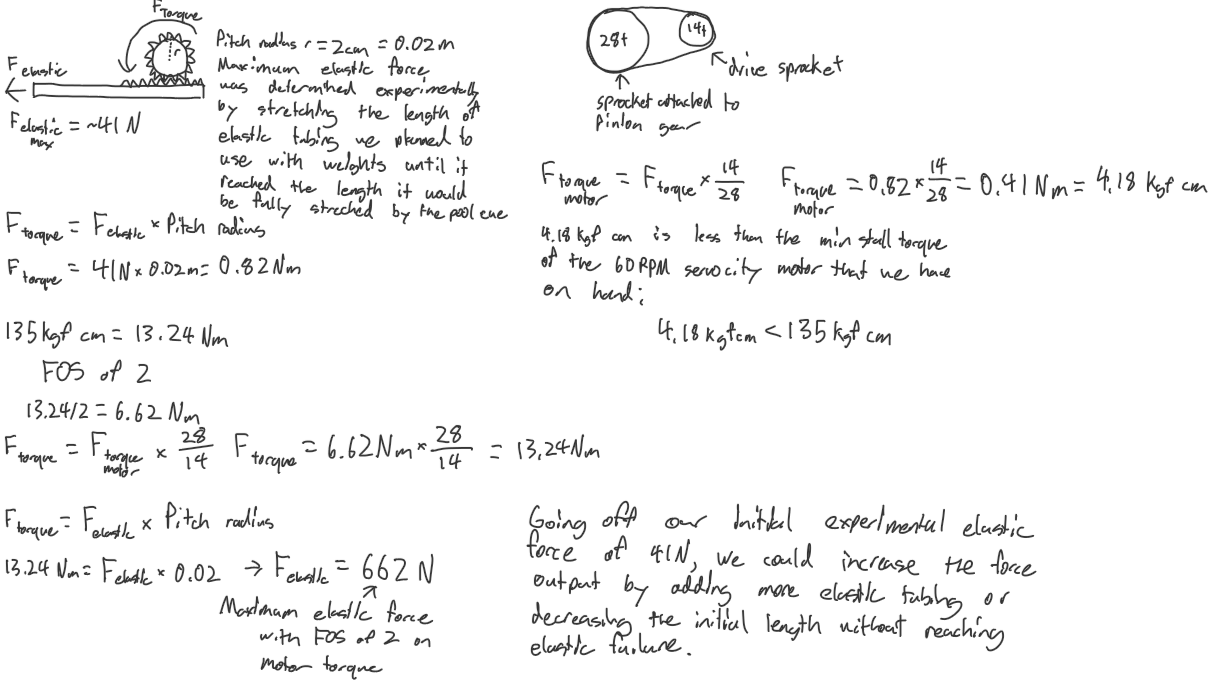 F Torque
r
F elastic
F elastic max = ~41 N
Pitch radius r = 2cm = 0.02m
Maximum elastic force
was determined experimentally
by stretching the length of
elastic tubing we planned to
use with weights until it
reached the length it would
be fully streched by the pool cue
F torque = F elastic × Pitch radius
F torque = 41N × 0.02m = 0.82Nm
28t
14t
drive sprocket
sprocket attached to
Pinion gear
F torque motor = F torque × 14/28 F torque motor = 0.82 × 14/28 = 0.41 Nm = 4.18 Kgf cm
4.18 Kgf cm is less than the min stall torque
of the 60 RPM servocity motor that we have
on hand:
4.18 kgf cm < 135 kgf cm
135 kgf cm = 13.24 Nm
FOS of 2
13.24/2 = 6.62 Nm
F torque = F torque motor × 28/14 F torque = 6.62 Nm × 28/14 = 13.24 Nm
F torque = F elastic × Pitch radius
13.24 Nm = F elastic × 0.02 → F elastic = 662 N
Maximum elastic force
with FOS of 2 on
motor torque
Going off our initial experimental elastic
force of 41N, we could increase the force
output by adding more elastic tubing or
decreasing the initial length without reaching
elastic failure.